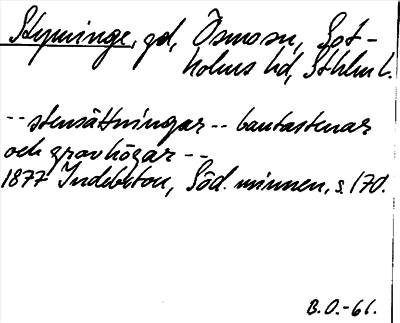 Styminge, gd, Ösmo sn, Sot-
holms hd, Sthlm l.
-- stensättningar -- bautastenar
och gravhögar --
1877 Indebetou, Söd. minnen, s. 170.
B.O.-61.